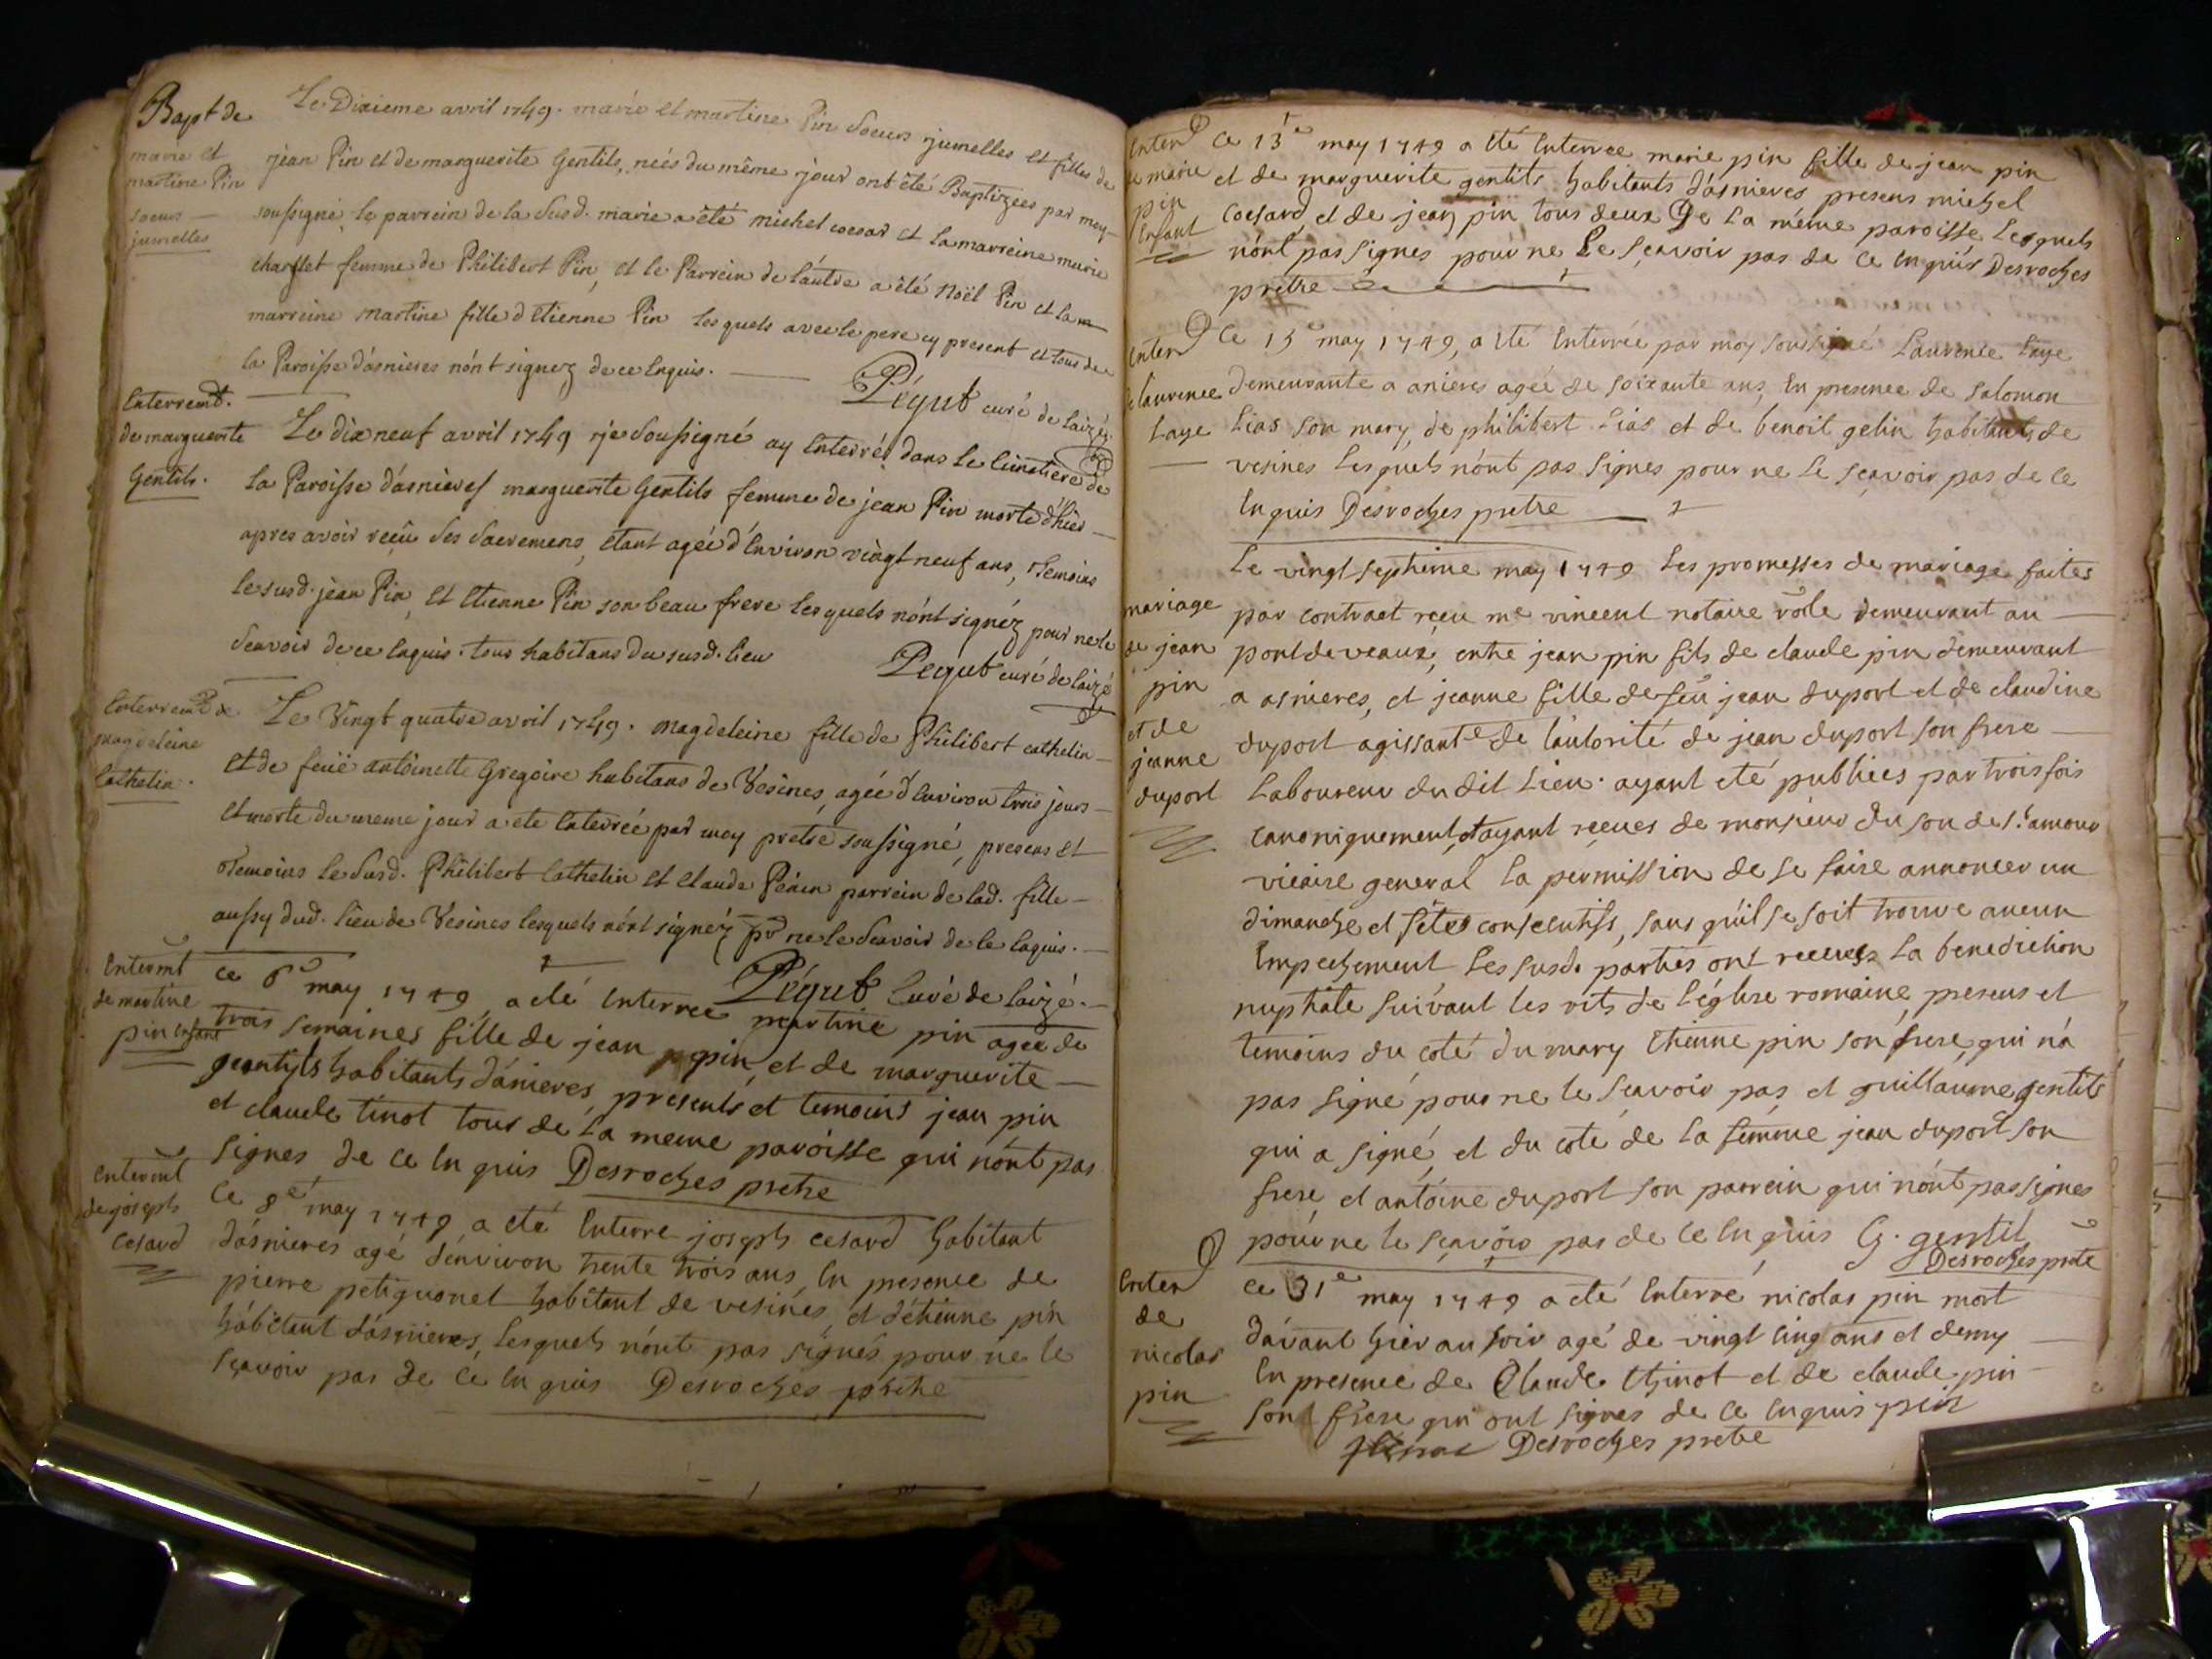 Bapt de
marie et
martine Pin
soeurs
jumelles
Le Dixieme avril 1749. marie et martine Pin soeurs jumelles et filles de
jean Pin et de marguerite Gentils, neés du même jour ont êté Baptizées par moy
soussigné, le parrein de la susd. marie a êté michel coesar et la marreine marie
femme de Philibert Pin, et le Parrein de l'autre a êté Noël Pin et la
marreine martine fille d'Etienne Pin lesquels avec le pere cy present et tous de
la Paroisse d'asnieres n'ont signez de ce Enquis.
Péqut curé de laizé
Enterremt.
de marguerite
Gentils.
Le dix neuf avril 1749 je soussigné ay Enterré dans le cimetiere de
la Paroisse d'asnieres marguerite Gentils femme de jean Pin morte d'hier
apres avoir reçû ses sacremens, étant agée d'Environ vingt neuf ans, Temoins
le susd. jean Pin, et Etienne Pin son beau frere lesquels n'ont signéz pour ne le
scavoir de ce Enquis. tous habitans du susd. lieu
Pequt curé de laizé
Enterremt de
magdeleine
Cathelin.
Le Vingt quatre avril 1749. magdeleine fille de Philibert cathelin
et de feuë antoinette Gregoire habitans de Vesines, agée d'Environ trois jours
et morte du meme jour a eté Enterrée par moy pretre soussigné, presens et
Temoins le susd. Philibert Cathelin et Claude parrein de lad. fille
aussy dud. lieu de Vesines lesquels n'ont signéz pr ne le scavoir de ce Enquis.
Péqut Curé de laizé.
Entermt
de martine
pin Enfant
ce 6e may 1749 a eté Enterree martine pin agée de
trois semaines fille de jean pin, et de marguerite
gentils habitants d'anieres, presents et temoins jean pin
et claude tinot tous de la meme paroisse qui n'ont pas
signes de ce Enquis Desroches pretre
Entermt
de joseph
cesard
Ce 8e may 1749 a eté Enterre joseph cesard habitant
d'asnieres agé d'environ trente trois ans, En presence de
pierre petiguonet habitant de vesines, et d'etienne pin
habitant d'asnieres, lesquels n'ont pas signés pour ne le
sçavoir pas de ce Enquis Desroches pretre
Enter
de marie
pin
Enfant
Ce 13e may 1749 a eté Enterree marie pin fille de jean pin
et de marguerite gentils habitants d'asnieres presens michel
coesard, et de jean pin tous deux de la même paroisse Lesquels
n'ont pas signes pour ne Le sçavoir pas de ce Enquis Desroches
pretre
Enter
de laurence
Laye
Ce 15e may 1749, a eté Enterrée par moy soussigné Laurence Laye
demeurante a anieres agée de soixante ans, En presence de salomon
Lias son mary, de philibert Lias et de benoit gelin habitants de
vesines Lesquels n'ont pas signes pour ne le sçavoir pas de ce
Enquis Desroches pretre
mariage
de jean
pin
et de
jeanne
duport
Le vingt septieme may 1749 Les promesses de mariage faites
par contract reçu me vincent notaire demeurant au
pontdevaux, entre jean pin fils de claude pin demeurant
a asnieres, et jeanne fille de feu jean duport et de claudine
duport agissante de l'autorité de jean duport son frere
Laboureur du dit Lieu. ayant eté publiées par trois fois
canoniquement, et ayant reçues de monsieur du son de st. amour
vicaire general la permission de se faire annoncer un
dimanche et fêtes consecutifs, sans qu'il se soit trouve aucun
Empechement les susd. parties ont receues la benediction
nuptiale suivant les rits de l'église romaine, presens et
temoins du coté du mary Etienne pin son frere, qui n'a
pas signé pour ne le sçavoir pas, et guillaume gentils
qui a signé, et du coté de la femme jean duport son
frere, et antoine duport son parrein qui n'ont pas signes
pour ne le sçavoir pas de ce Enquis G. gentil
Desroches pretre
Enter
de
nicolas
pin
ce 31e may 1749 a eté Enterré nicolas pin mort
d'avant hier au soir agé de vingt cinq ans et demy
En presence de Claude thinot et de claude pin
son frere qui ont signes de ce Enquis pin
Desroches pretre